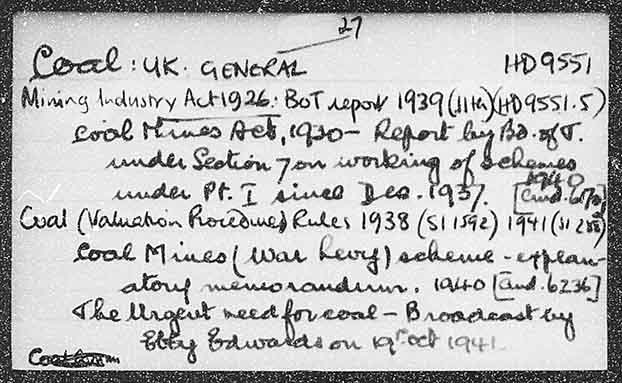 27
Coal: UK. GENERAL HD9551
Mining Industry Act 1926: BoT report 1939 (11th) (HD9551.5)
Coal Mines Act, 1930 - Report by Bd. of T.
under Section 7 on working of schemes
under Pt. I since Dec. 1937. 1940 [Cmd.
Coal (Valuation Procedure) Rules 1938 (SI 1592) 1941 (SI
Coal Mines (War Levy) scheme - explan-
atory memorandum. 1940 [Cmd. 6236]
The Urgent need for coal - Broadcast by
Ebby Edwards on 19th Oct 1941